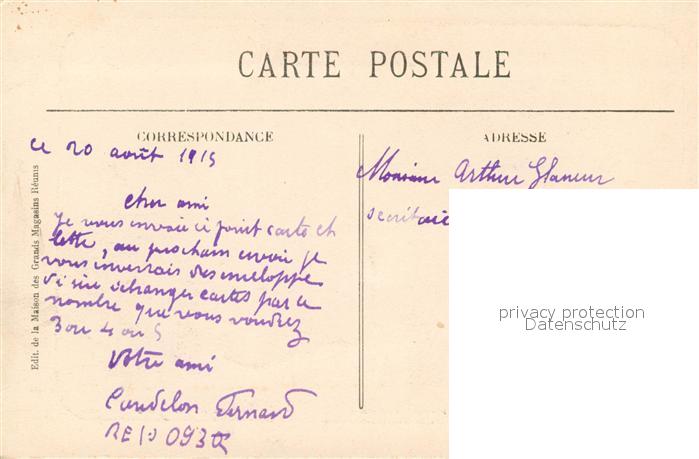 CARTE POSTALE
CORRESPONDANCE
ADRESSE
Edit. de la Maison des Grands Magasins Réunis
Ce 20 août 1915
Cher ami
Je vous envoie ci joint carte et
lettre, au prochain envoi je
vous inverrais des enveloppe
échanger cartes par le
nombre que vous voudrez
3 ou 4 ou 5
Votre ami
Fernand
Monsieur Arthur Glaneur
privacy protection
Datenschutz